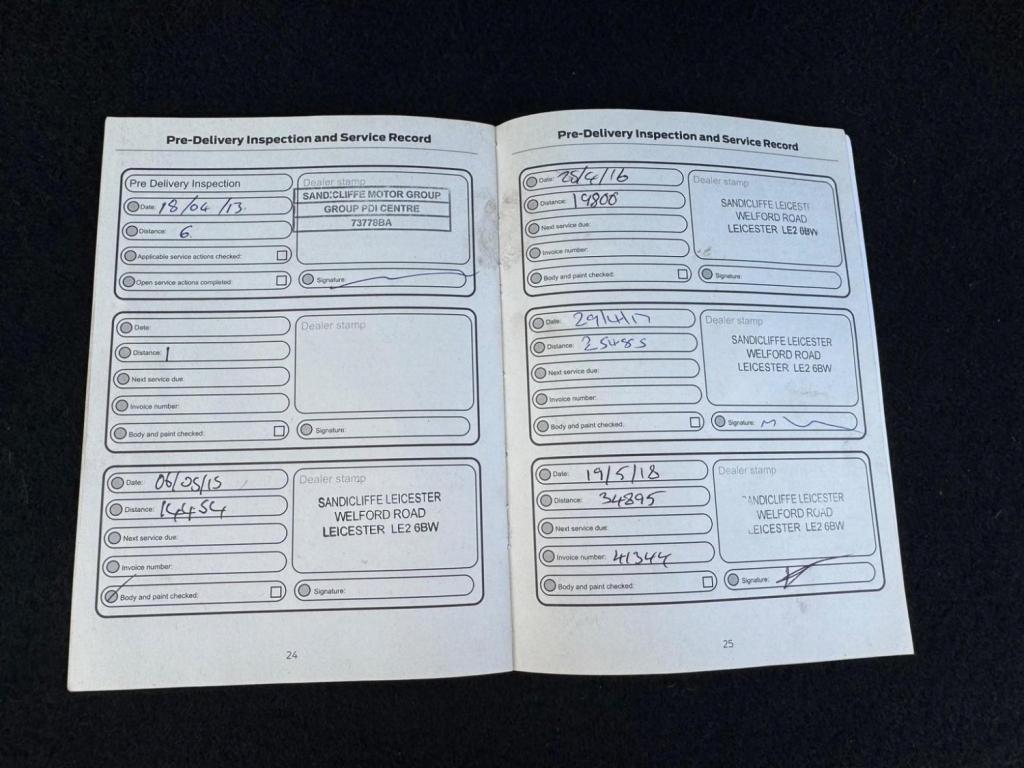 Pre-Delivery Inspection and Service Record
Pre Delivery Inspection
Date: 18/04/13.
Distance: 6.
Applicable service actions checked:
Open service actions completed:
Dealer stamp
SANDICLIFFE MOTOR GROUP
GROUP PDI CENTRE
73778BA
Signature:
Date:
Distance:
Next service due:
Invoice number:
Body and paint checked:
Dealer stamp
Signature:
Date: 06/05/15
Distance: 14454
Next service due:
Invoice number:
Body and paint checked:
Dealer stamp
SANDICLIFFE LEICESTER
WELFORD ROAD
LEICESTER LE2 6BW
Signature:
24
Pre-Delivery Inspection and Service Record
Date: 28/4/16
Distance: 19800
Next service due:
Invoice number:
Body and paint checked:
Dealer stamp
SANDICLIFFE LEICEST
WELFORD ROAD
LEICESTER LE2 6BW
Signature:
Date: 29/4/17
Distance: 25485
Next service due:
Invoice number:
Body and paint checked:
Dealer stamp
SANDICLIFFE LEICESTER
WELFORD ROAD
LEICESTER LE2 6BW
Signature:
Date: 19/5/18
Distance: 34895
Next service due:
Invoice number: 41344
Body and paint checked:
Dealer stamp
SANDICLIFFE LEICESTER
WELFORD ROAD
LEICESTER LE2 6BW
Signature:
25